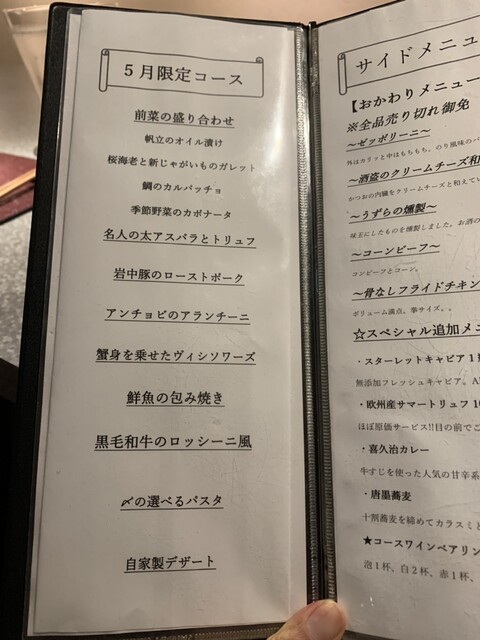 5月限定コース
前菜の盛り合わせ
帆立のオイル漬け
桜海老と新じゃがいものガレット
鯛のカルパッチョ
季節野菜のカポナータ
名人の太アスパラとトリュフ
岩中豚のローストポーク
アンチョビのアランチーニ
蟹身を乗せたヴィシソワーズ
鮮魚の包み焼き
黒毛和牛のロッシーニ風
〆の選べるパスタ
自家製デザート
サイドメニュ
【おかわりメニュー
※全品売り切れ御免
～ゼッポリーニ～
外はカリッと中はもちもち。のり風味の
～酒盗のクリームチーズ和
かつおの内臓をクリームチーズと和えてい
～うずらの燻製～
味玉にしたものを燻製しました。お酒の
～コーンビーフ～
コンビーフとコーン。
～骨なしフライドチキン
ボリューム満点。拳サイズ。
☆スペシャル追加メニ
・スターレットキャビア1
無添加フレッシュキャビア。
・欧州産サマートリュフ
ほぼ原価サービス!!目の前で
・喜久治カレー
牛すじを使った人気の甘辛系
・唐墨蕎麦
十割蕎麦を締めてカラスミ
★コースワインペアリン
泡1杯、白2杯、赤1杯、